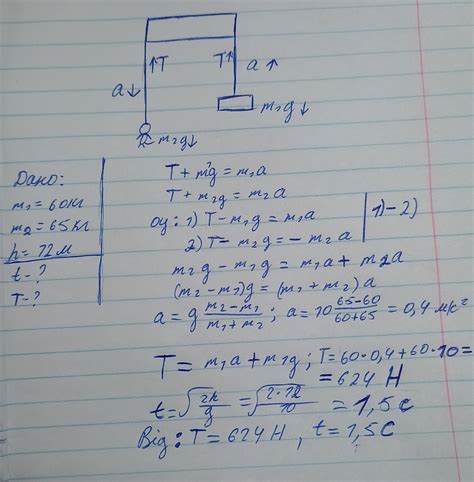 ↑T T↑ a↑
a↓
m₁g↓
m₂g↓
Дано:
m₁=60кг
m₂=65кг
h=12м
t-?
T-?
T+m₁g=m₁a
T+m₂g=m₂a
оу: 1) T-m₁g=m₁a
2) T-m₂g=-m₂a
1)-2)
m₂g-m₁g=m₁a+m₂a
(m₂-m₁)g=(m₁+m₂)a
a=g (m₂-m₁)/(m₁+m₂); a=10 (65-60)/(60+65)=0,4 м/с²
T=m₁a+m₁g; T=60·0,4+60·10=
=624 Н
t=√(2h/g)=√(2·12/10)=1,5с
Від: T=624Н, t=1,5с